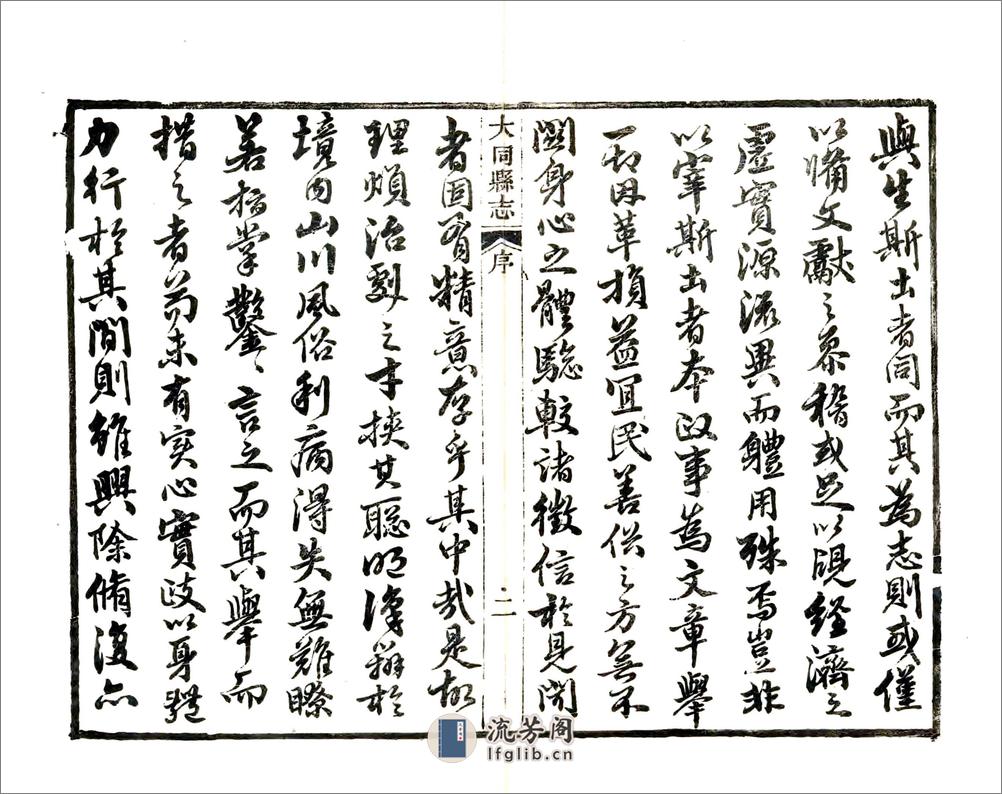 與生斯土者同而其為志則或僅
以備文獻之參稽或足以覘經濟之
虛實源流異而體用殊焉豈非
以宰斯土者本政事為文章舉
一切因革損益宜民善俗之方無不
關身心之體驗較諸徵信於見聞
大同縣志
序
二
者固有精意存乎其中哉是故
理煩治劇之才挾其聰明浮辯於
境內山川風俗利病得失無難瞭
若指掌鑿鑿言之而其舉而
措之者苟未有實心實政以身體
力行於其間則雖興除脩復亦
流芳阁
lfglib.cn